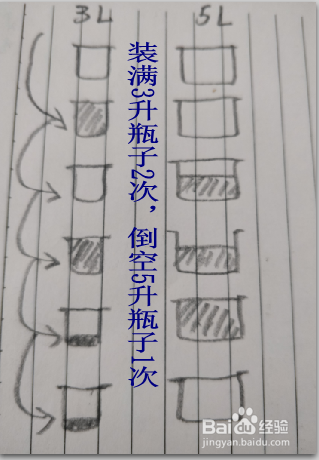 3L 5L
装满3升瓶子2次，倒空5升瓶子1次
Baidu经验
jingyan.baidu.com